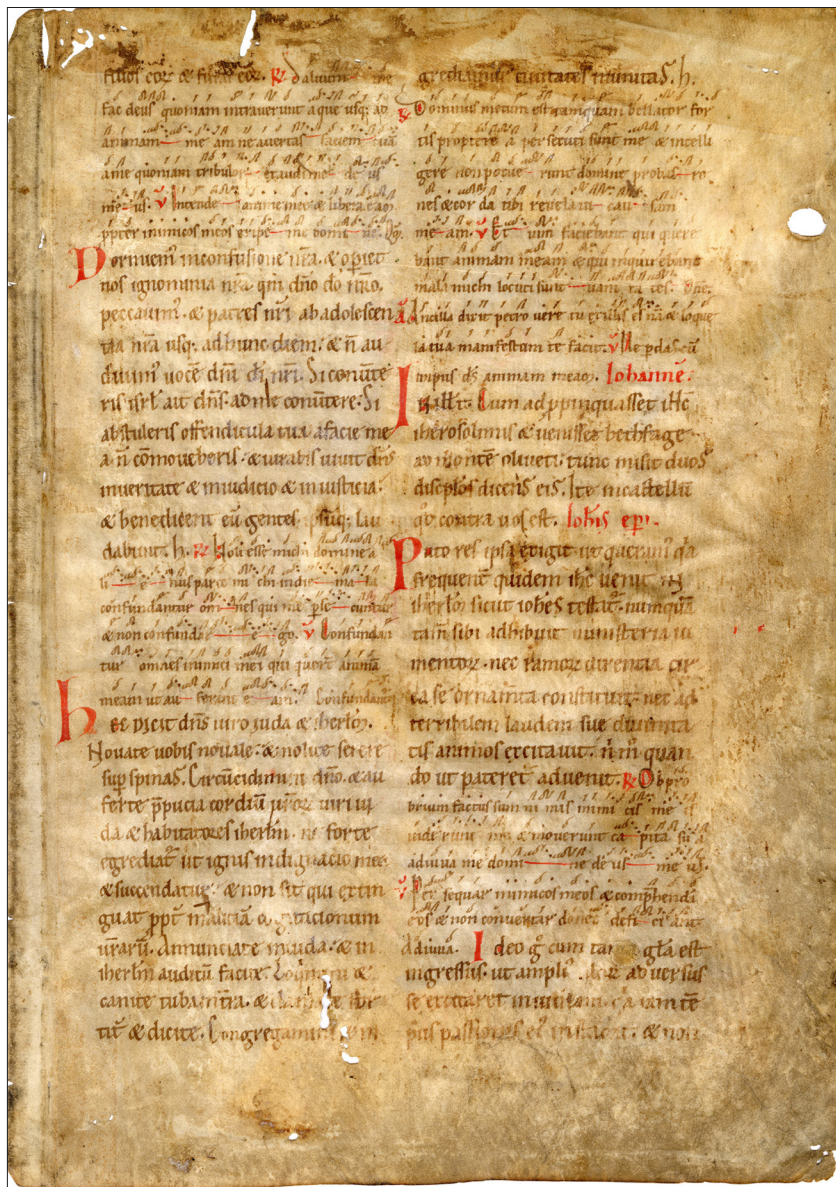 filios eorum & filias eorum. R Salvum me
fac deus quoniam intraverunt aque usq; ad
animam me am ne avertas faciem tuā
a me quoniam tribulor exaudi me de us
me us. V Intende anime mee & libera eam
ppter inimicos meos eripe me domi ne. Qm̄.
Dormiem᾽ in confusione nr̄a. & opiet
nos ignominia nr̄a qm̄ dn̄o dō nr̄o.
peccavim᾽. & patres nr̄i ab adolescen
tia nr̄a usq; ad hunc diem. & n̄ au
divim᾽ vocē dn̄i dī nr̄i. Si conv̄te
ris isrl̄ ait dn̄s. ad me conv̄tere. Si
abstuleris offendicula tua a facie me
a n̄ cōmoveberis. & iurabis vivit dn̄s
in veritate & in iudicio & in iusticia.
& benedicent eū gentes ipsūq; lau
dabunt. h. R Noli esse michi domine a
li e nus parce mi chi in die ma la
confundantur om nes qui me pse cuntur
& non confundar e go. V Confundan
tur omnes inimici mei qui querunt animā
meam ut au ferant e am. Confundant᾽
hec dicit dn̄s viro iuda & iherlm̄.
Novate vobis novale. & nolite serere
sup spinas. Circūcidimini dn̄o. & au
ferte p̄pucia cordiū vr̄or viri iu
da & habitatores iherlm̄. ne forte
egrediat᾽ ut ignis indignacio mea
& succendatur. & non sit qui extin
guat ppt̄ maliciā cogitacionum
vr̄arū. Annunciate in iuda. & in
iherlm̄ auditū facite. Loquimini &
canite tuba in tr̄a. & clamate for
tit̄ & dicite. Congregamini & in
grediamur civitates munitas. h.
R Dominus mecum est tamquam bellator for
tis propterea persecuti sunt me & intelli
gere non potue runt domine probas re
nes & cor da tibi revelavi cau sam
me am. V Et vim faciebant qui quere
bant animam meam & qui inquirebant
mala michi locuti sunt vani ta tes. Dn̄e.
ā Ancilla dixit petro vere tu ex illis es nā & loque
la tua manifestum te facit. V Ne pdas cū
impiis ds̄ animam meam. Iohanne.
In illt̄. Cum adppinquasset ihc̄
iherosolimis & venisset bethfage
ad montē oliveti. tunc misit duos
discip̄los dicens eis. Ite in castellū
qd̄ contra vos est. Ioh̄is ep̄i.
Puto res ipsa exigit ut queram᾽ qa
frequent̄ quidem ihc̄ venit in
iherlm̄ sicut ioh̄es testat᾽. numquā
tam̄ sibi adhibuit ministeria iu
mentor. nec ramor virentia cir
ca se ornam̄ta constituit. nec ad
terribilem laudem sue divinita
tis animos excitavit. n̄ m̄ quan
do ut pateretur advenit. R Obpro
brium factus sum ni mis inimi cis me is
viderunt me & moverunt ca pita su a
adiuva me domi ne de us me us.
V Per sequar inimicos meos & comp̄hendā
eos & non convertar donec defi ci ant
Adiuva. Ideo g̊ cum tanta gl̄a est
ingressus. ut ampli᾽ illor adversus
se excitaret invidiam. q̄a iam tē
pus passionis ei᾽ instabat. & non